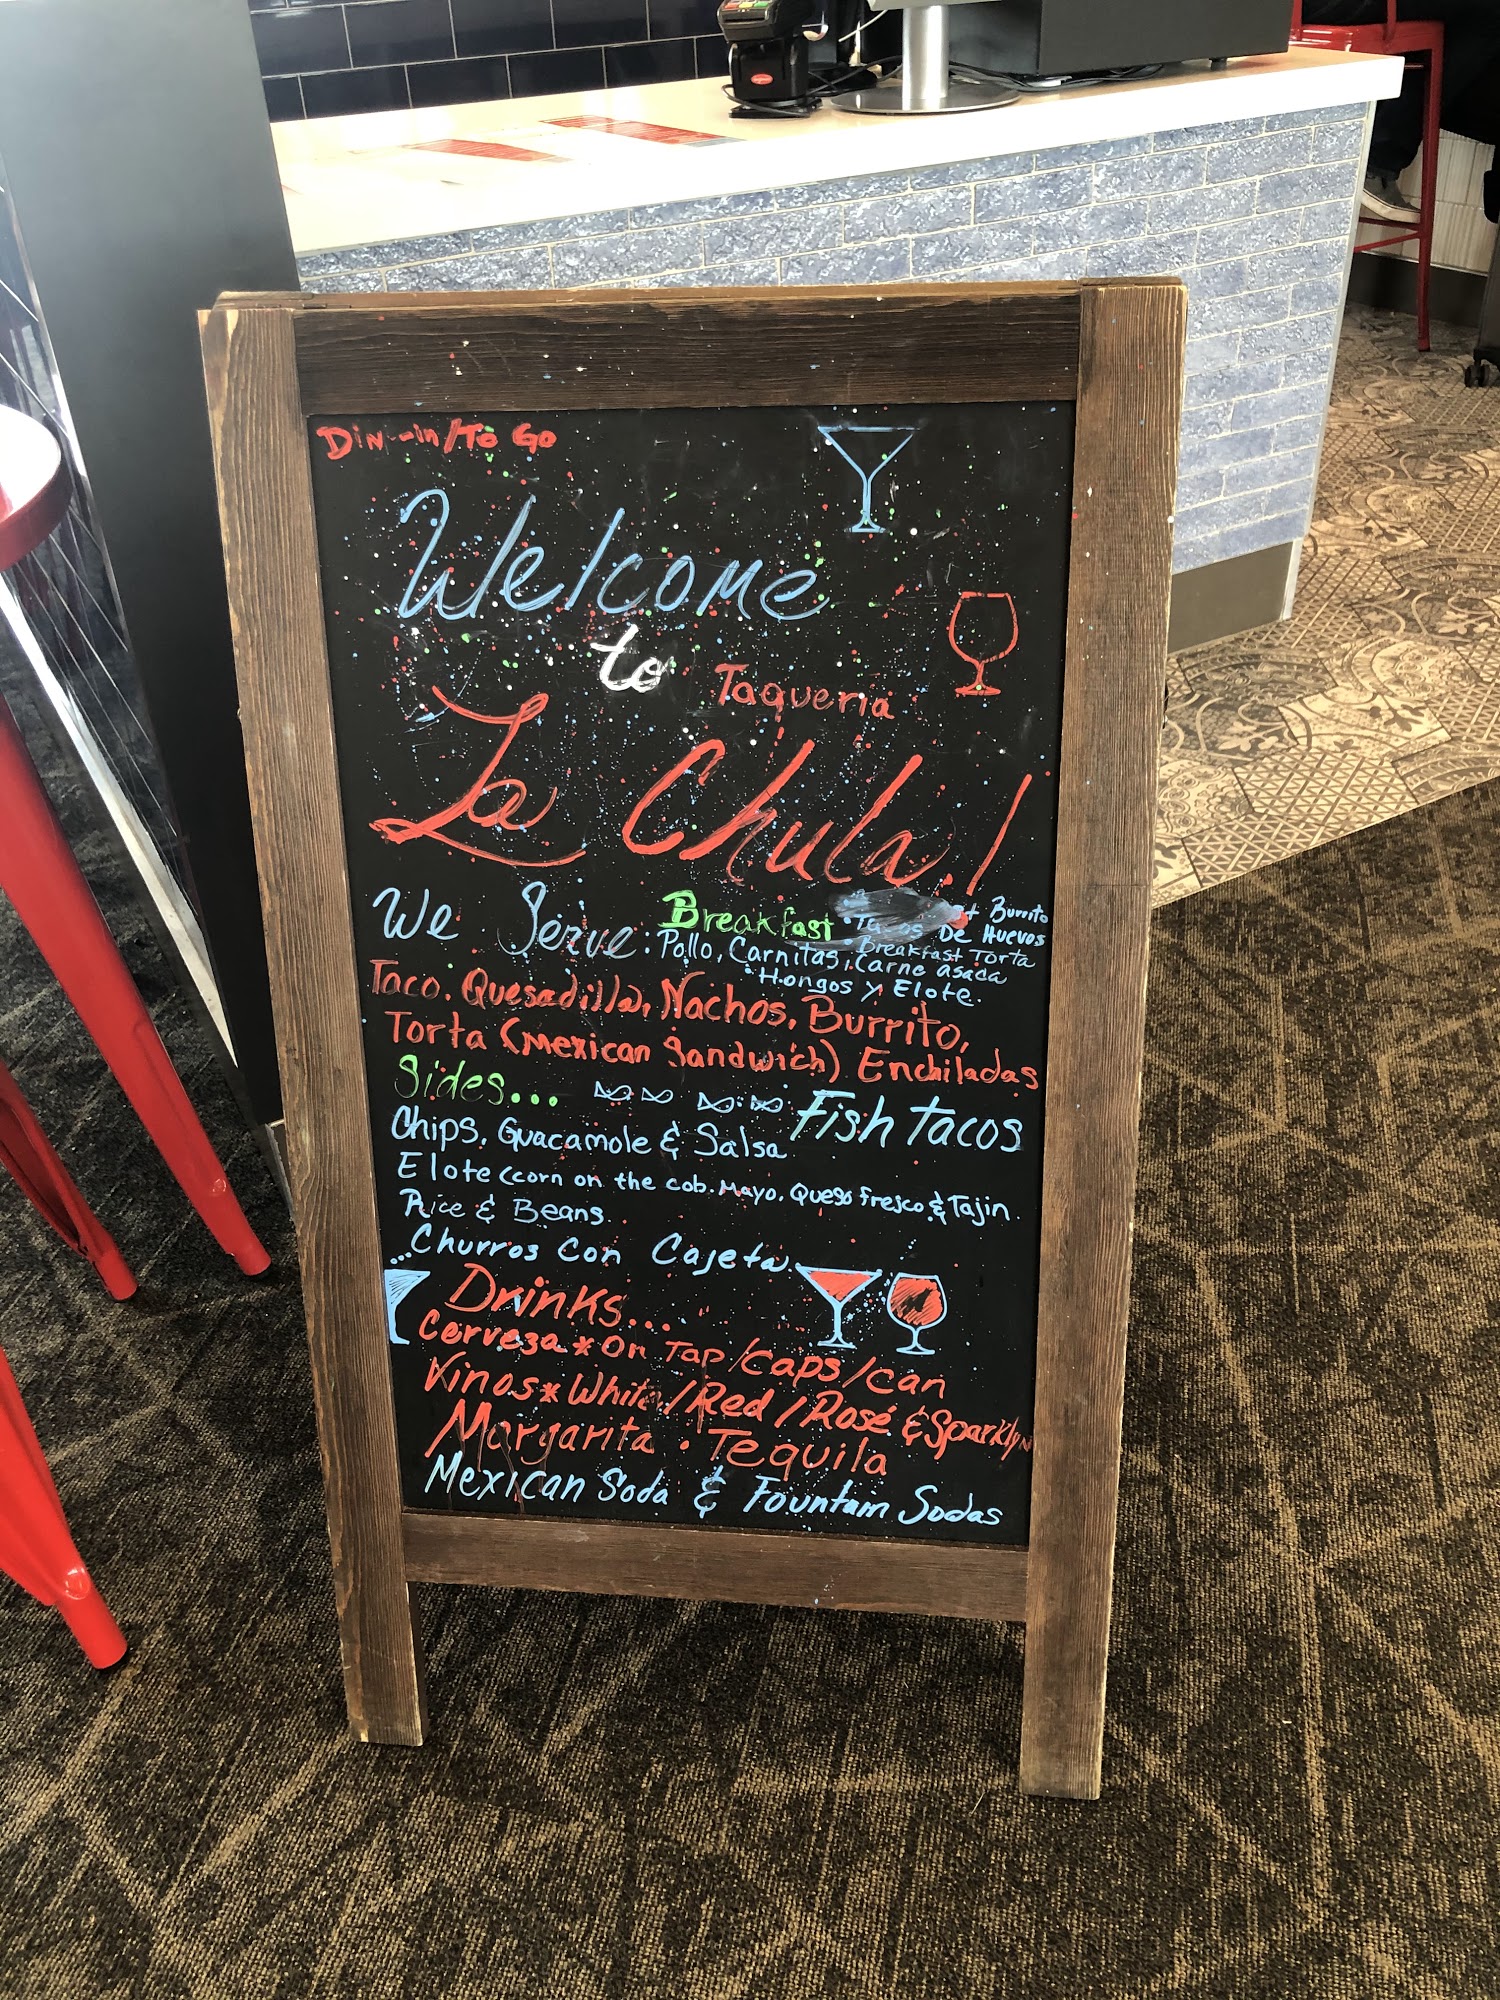 Din-in/To Go
Welcome
to Taqueria
La Chula!
We Serve: Breakfast Burrito
• Tacos De Huevos
• Breakfast Torta
Pollo, Carnitas, Carne asada
• Hongos y Elote.
Taco. Quesadilla, Nachos, Burrito,
Torta (Mexican Sandwich) Enchiladas
Sides... Fish Tacos
Chips, Guacamole & Salsa
Elote (corn on the cob. Mayo. Queso fresco & Tajin.
Rice & Beans.
...Churros Con Cajeta
Drinks...
Cerveza * On Tap/Caps/Can
Vinos * White/Red/Rosé & Sparklyn
Margarita • Tequila
Mexican Soda & Fountain Sodas